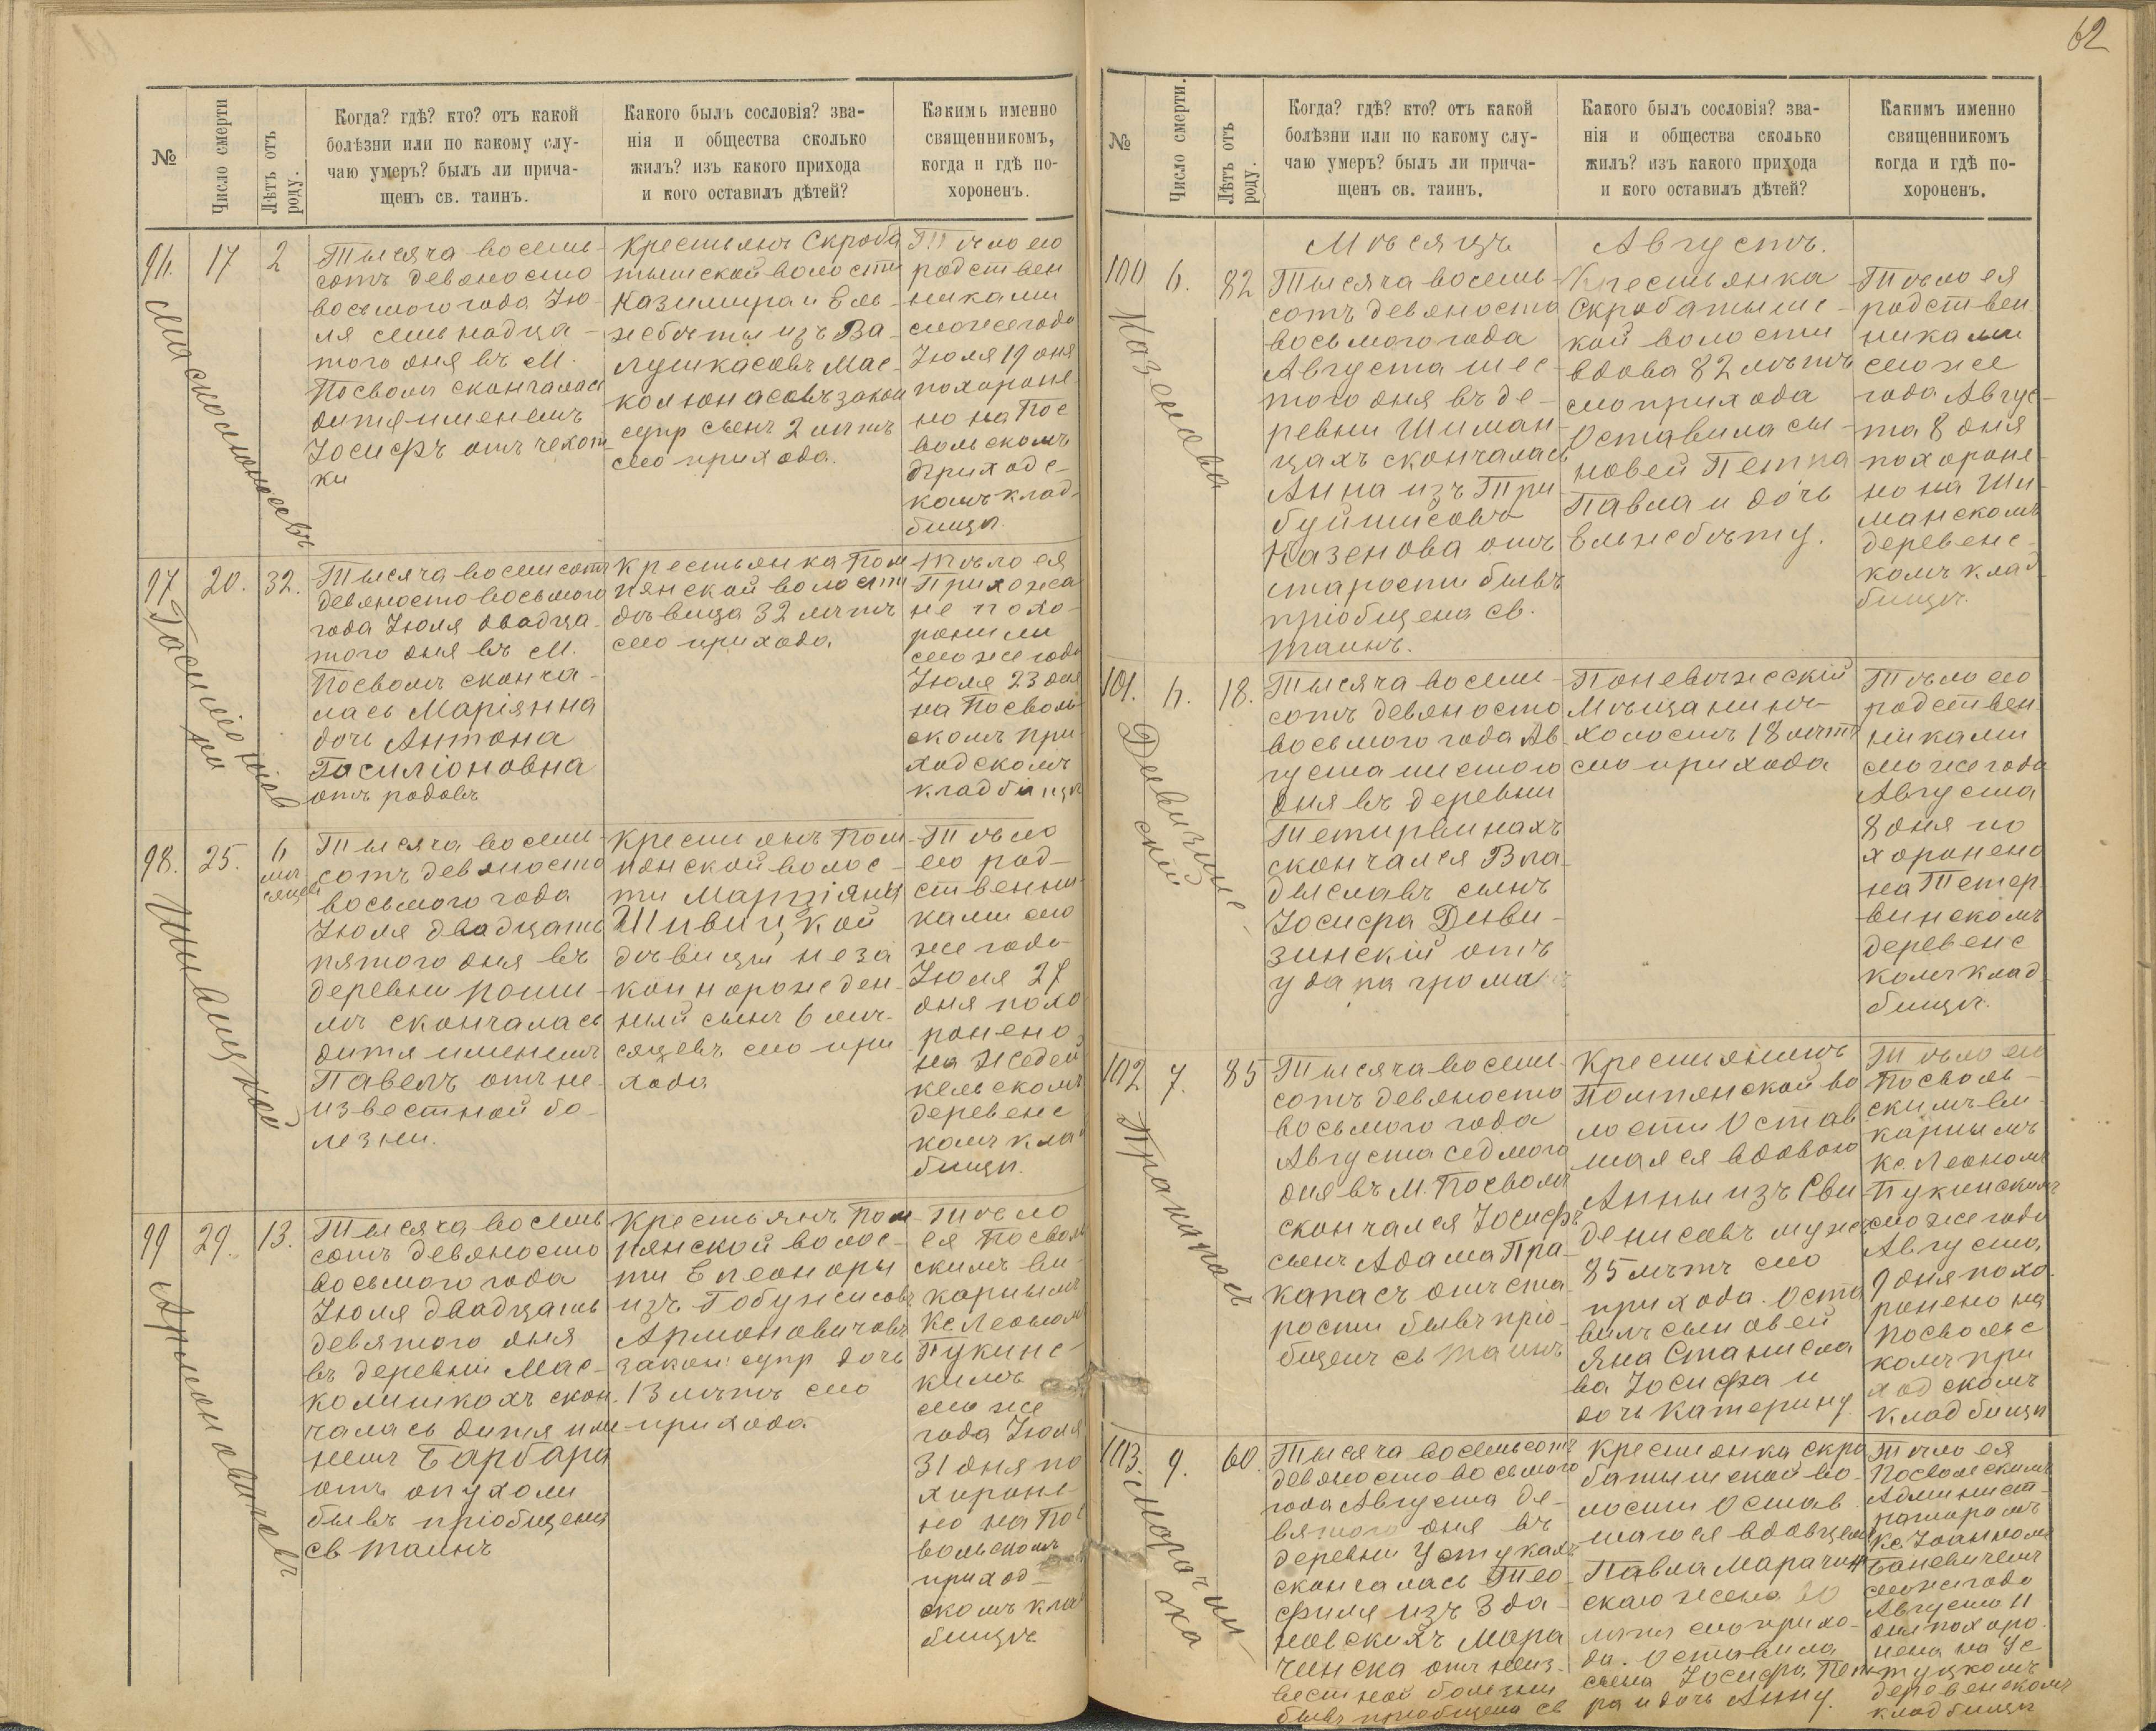 №
Число смерти
Лѣтъ отъ
роду.
Когда? гдѣ? кто? отъ какой
болѣзни или по какому слу-
чаю умеръ? былъ ли прича-
щенъ св. таинъ.
Какого былъ сословія? зва-
нія и общества сколько
жилъ? изъ какого прихода
и кого оставилъ дѣтей?
Какимъ именно
священникомъ,
когда и гдѣ по-
хороненъ.
96.
17
2
Тысяча восемь-
сотъ девяносто
восьмого года Ію-
ля семьнадца-
того дня въ М.
Посволѣ скончалась
дитя именемъ
Іосифъ отъ чехот
ки
Крестьянъ Скроба
тышской волости
Казимира и Ель-
жебѣты изъ Ва-
лушкасовъ Мас-
колюнасовъ закон
супр сынъ 2 лѣтъ
сего прихода.
Тѣло его
родствен
никами
сего же года
Іюля 19 дня
похороне
но на Пос
вольскомъ
приходс-
комъ клад-
бищѣ.
97
20.
32.
Тысяча восемисотъ
девяносто восьмого
года Іюля двадца-
того дня въ М.
Посволѣ сконча-
лась Маріянна
дочь Антона
Гасиліоновна
отъ родовъ
Крестьянка Пом
пянской волости
дѣвица 32 лѣтъ
сего прихода.
Тѣло ея
Прихожа
не похо-
ронили
сего же года
Іюля 23 дня
на Посволь
скомъ при-
ходскомъ
кладбищѣ
98.
25.
6
мѣ
сяцей
Тысяча восемь-
сотъ девяносто
восьмого года
Іюля двадцать
пятого дня въ
деревни
скончалась
дитя именемъ
Павелъ отъ не-
извѣстной бо-
лезни.
Крестьянъ Пом
пянской волос-
ти Марціяны
Шивицкой
дѣвицы неза
коннорожден-
ный сынъ 6 мѣ-
сяцевъ сего при
хода
Тѣло
его род-
ственни-
ками сего
же года
Іюля 27
дня похо
ронено
на Жедей
кельскомъ
деревенс
комъ клад
бищѣ.
Шивицкой
99
29.
13.
Тысяча восемь
сотъ девяносто
восьмого года
Іюля двадцать
девятого дня
въ деревни Мас-
колишкахъ скон
чалась дитя име-
немъ Барбара
отъ опухоли
бывъ пріобщена
св таинъ
Крестьянъ Пом
пянской волос-
ти Елеоноры
изъ Гобужисовъ
Армоновичовъ
закон: супр дочь
13 лѣтъ сего
прихода
Тѣло
ея Посволь
скимъ ви-
карнымъ
Кс. Леономъ
Пукинс-
кимъ
сего же
года Іюля
31 дня по
хороне-
но на Пос
вольскомъ
приход-
скомъ клад
бищѣ
Армоновичовъ
62
№
Число смерти.
Лѣтъ отъ
роду.
Когда? гдѣ? кто? отъ какой
болѣзни или по какому слу-
чаю умеръ? былъ ли прича-
щенъ св. таинъ.
Какого былъ сословія? зва-
нія и общества сколько
жилъ? изъ какого прихода
и кого оставилъ дѣтей?
Какимъ именно
священникомъ
когда и гдѣ по-
хороненъ.
Мѣсяцъ Августъ.
100
6.
82
Тысяча восемь
сотъ девяноста
восьмого года
Августа шес-
того дня въ де-
ревни Шиман-
цахъ скончалась
Анна изъ Три
буйшисовъ
Казенова отъ
старости бывъ
пріобщена св.
таинъ.
Крестьянка
Скробатышс-
кой волости
вдова 82 лѣтъ
сего прихода
Оставила сы-
новей Петра
Павла и дочь
Ельжебѣту.
Тѣло ея
родствен
никами
сего же
года Авгус-
та 8 дня
похороне-
но на Ши-
манскомъ
деревенс-
комъ клад
бищѣ.
Казенова
101.
6.
18.
Тысяча восемь-
сотъ девяносто
восьмого года Ав-
густа шестого
дня въ деревни
Тетирвинахъ
скончался Вла-
дыславъ сынъ
Іосифа Дывви-
зинскій отъ
удара грома
Поневѣжескій
Мѣщанинъ
холостъ 18 лѣтъ
сего прихода
Тѣло его
родствен
никами
сего же года
Августа
8 дня по
хоронено
на Тетер-
винскомъ
деревенс
комъ клад
бищѣ.
102
7.
85
Тысяча восемь-
сотъ девяносто
восьмого года
Августа седмого
дня въ М. Посволѣ
скончался Іосифъ
сынъ Адама Пра-
капасъ отъ ста-
рости бывъ прі-
общенъ св таинъ
Крестьянинъ
Помпянской во
лости Остав
шаяся вдовою
Анны изъ Сви-
денисовъ мужъ
85 лѣтъ сего
прихода. Оста
вилъ сыновей
Яна Станисла
ва Іосифа и
дочь Катерину
Тѣло его
Посволь-
скимъ ви-
карнымъ
Кс. Леономъ
Пукинскимъ
сего же года
Августа,
9 дня похо
ронено на
Посвольс
комъ при
ходскомъ
кладбищѣ
Пракапасъ
103.
9.
60.
Тысяча восемьсотъ
девяносто восьмого
года Августа де-
вятого дня въ
деревни Устукахъ
скончалась Тео-
филя изъ Зда-
новскихъ Мора
чинска отъ неиз-
вестной болезни
бывъ пріобщена св
Крестьянка Скро
батышской во-
лости Остав
шагося вдовцемъ
Павла Морачин
скаго жена 60
лѣтъ сего прихо-
да. Оставила
сына Іосифа, Пет-
ра и дочь Анну.
Тѣло ея
Посвольскимъ
Админист-
раторомъ
Кс. Іоанномъ
Баневичемъ
сего же года
Августа 11
дня похоро-
нена на Ус-
тукскомъ
деревенскомъ
кладбищѣ